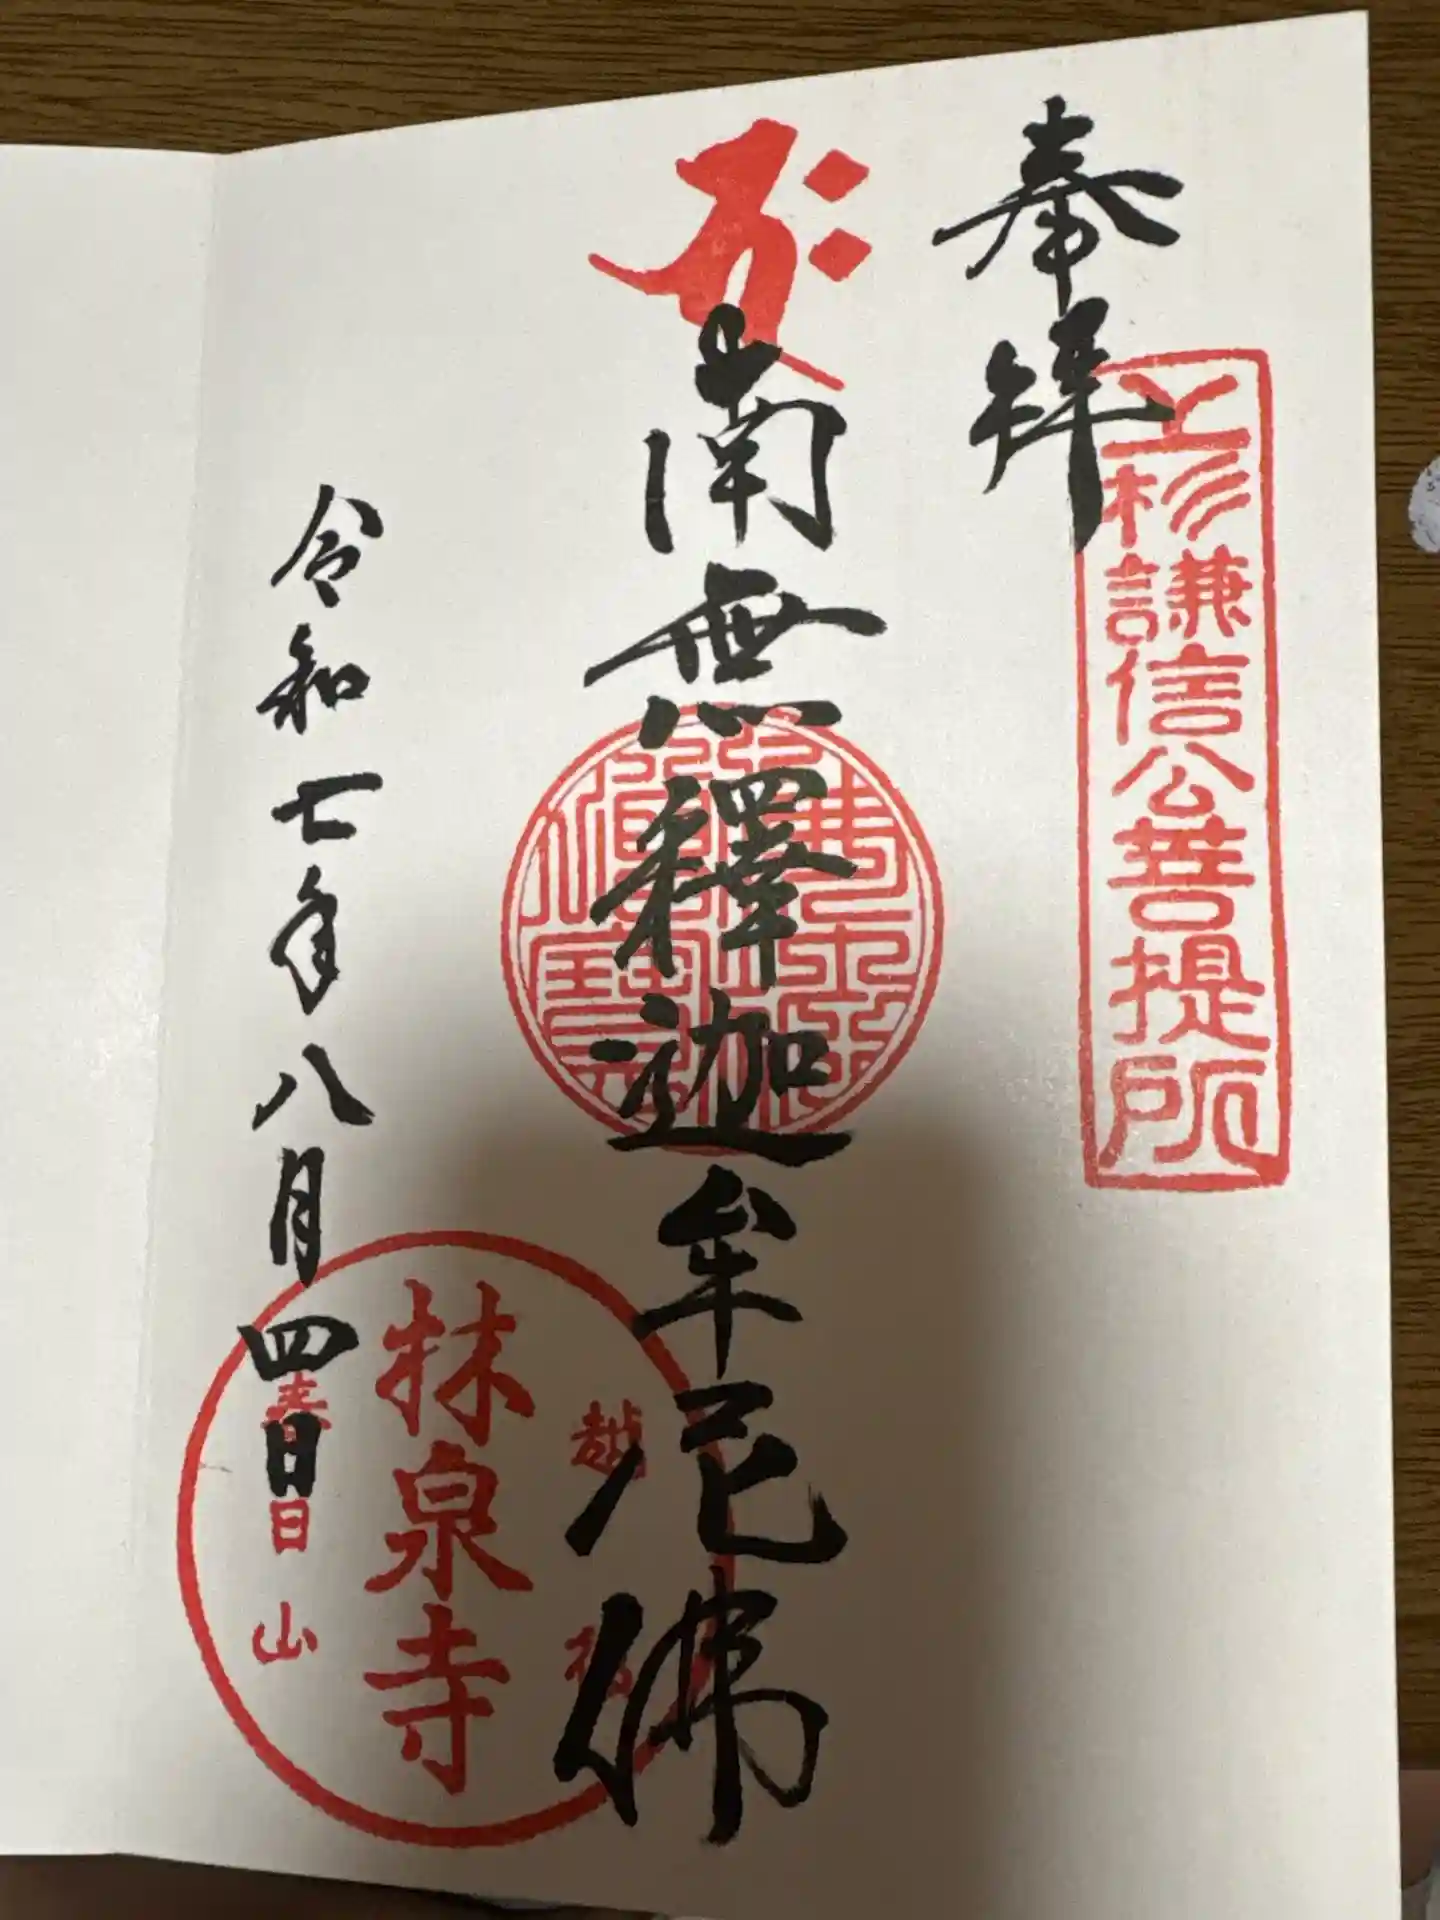 奉拝
上杉謙信公菩提所
南無釋迦牟尼佛
佛法僧寶
令和七年八月四日
越後
林泉寺
春日山